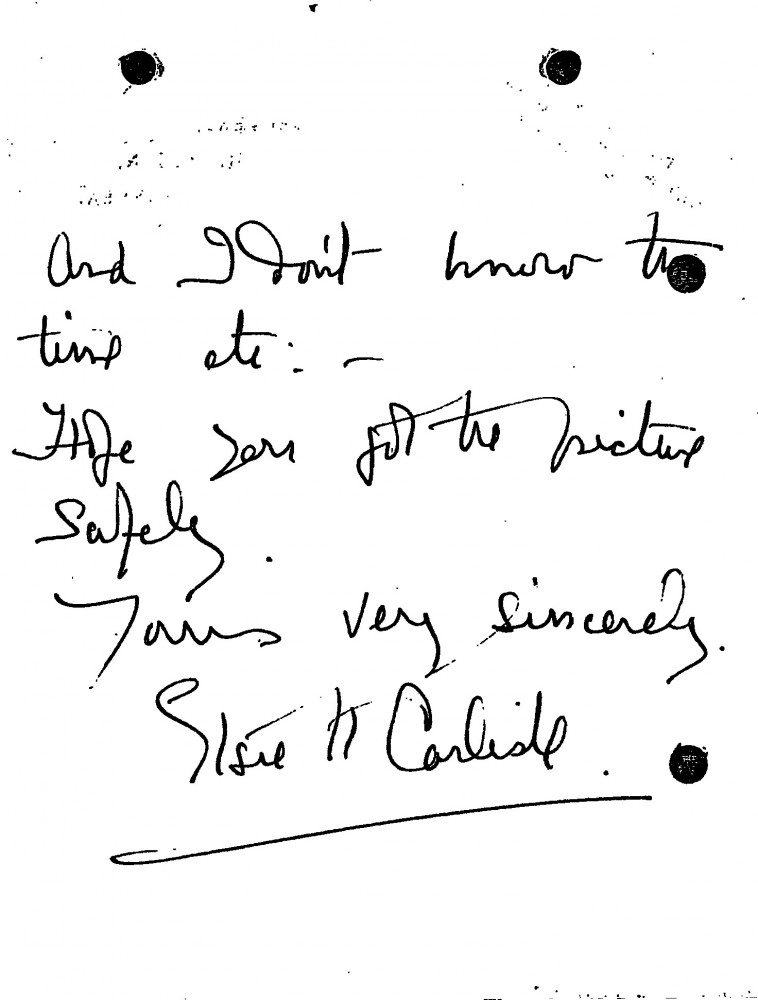 And I don't know the
time etc: –
Hope you got the picture
safely.
Yours very sincerely.
Elsie H Carlisle.